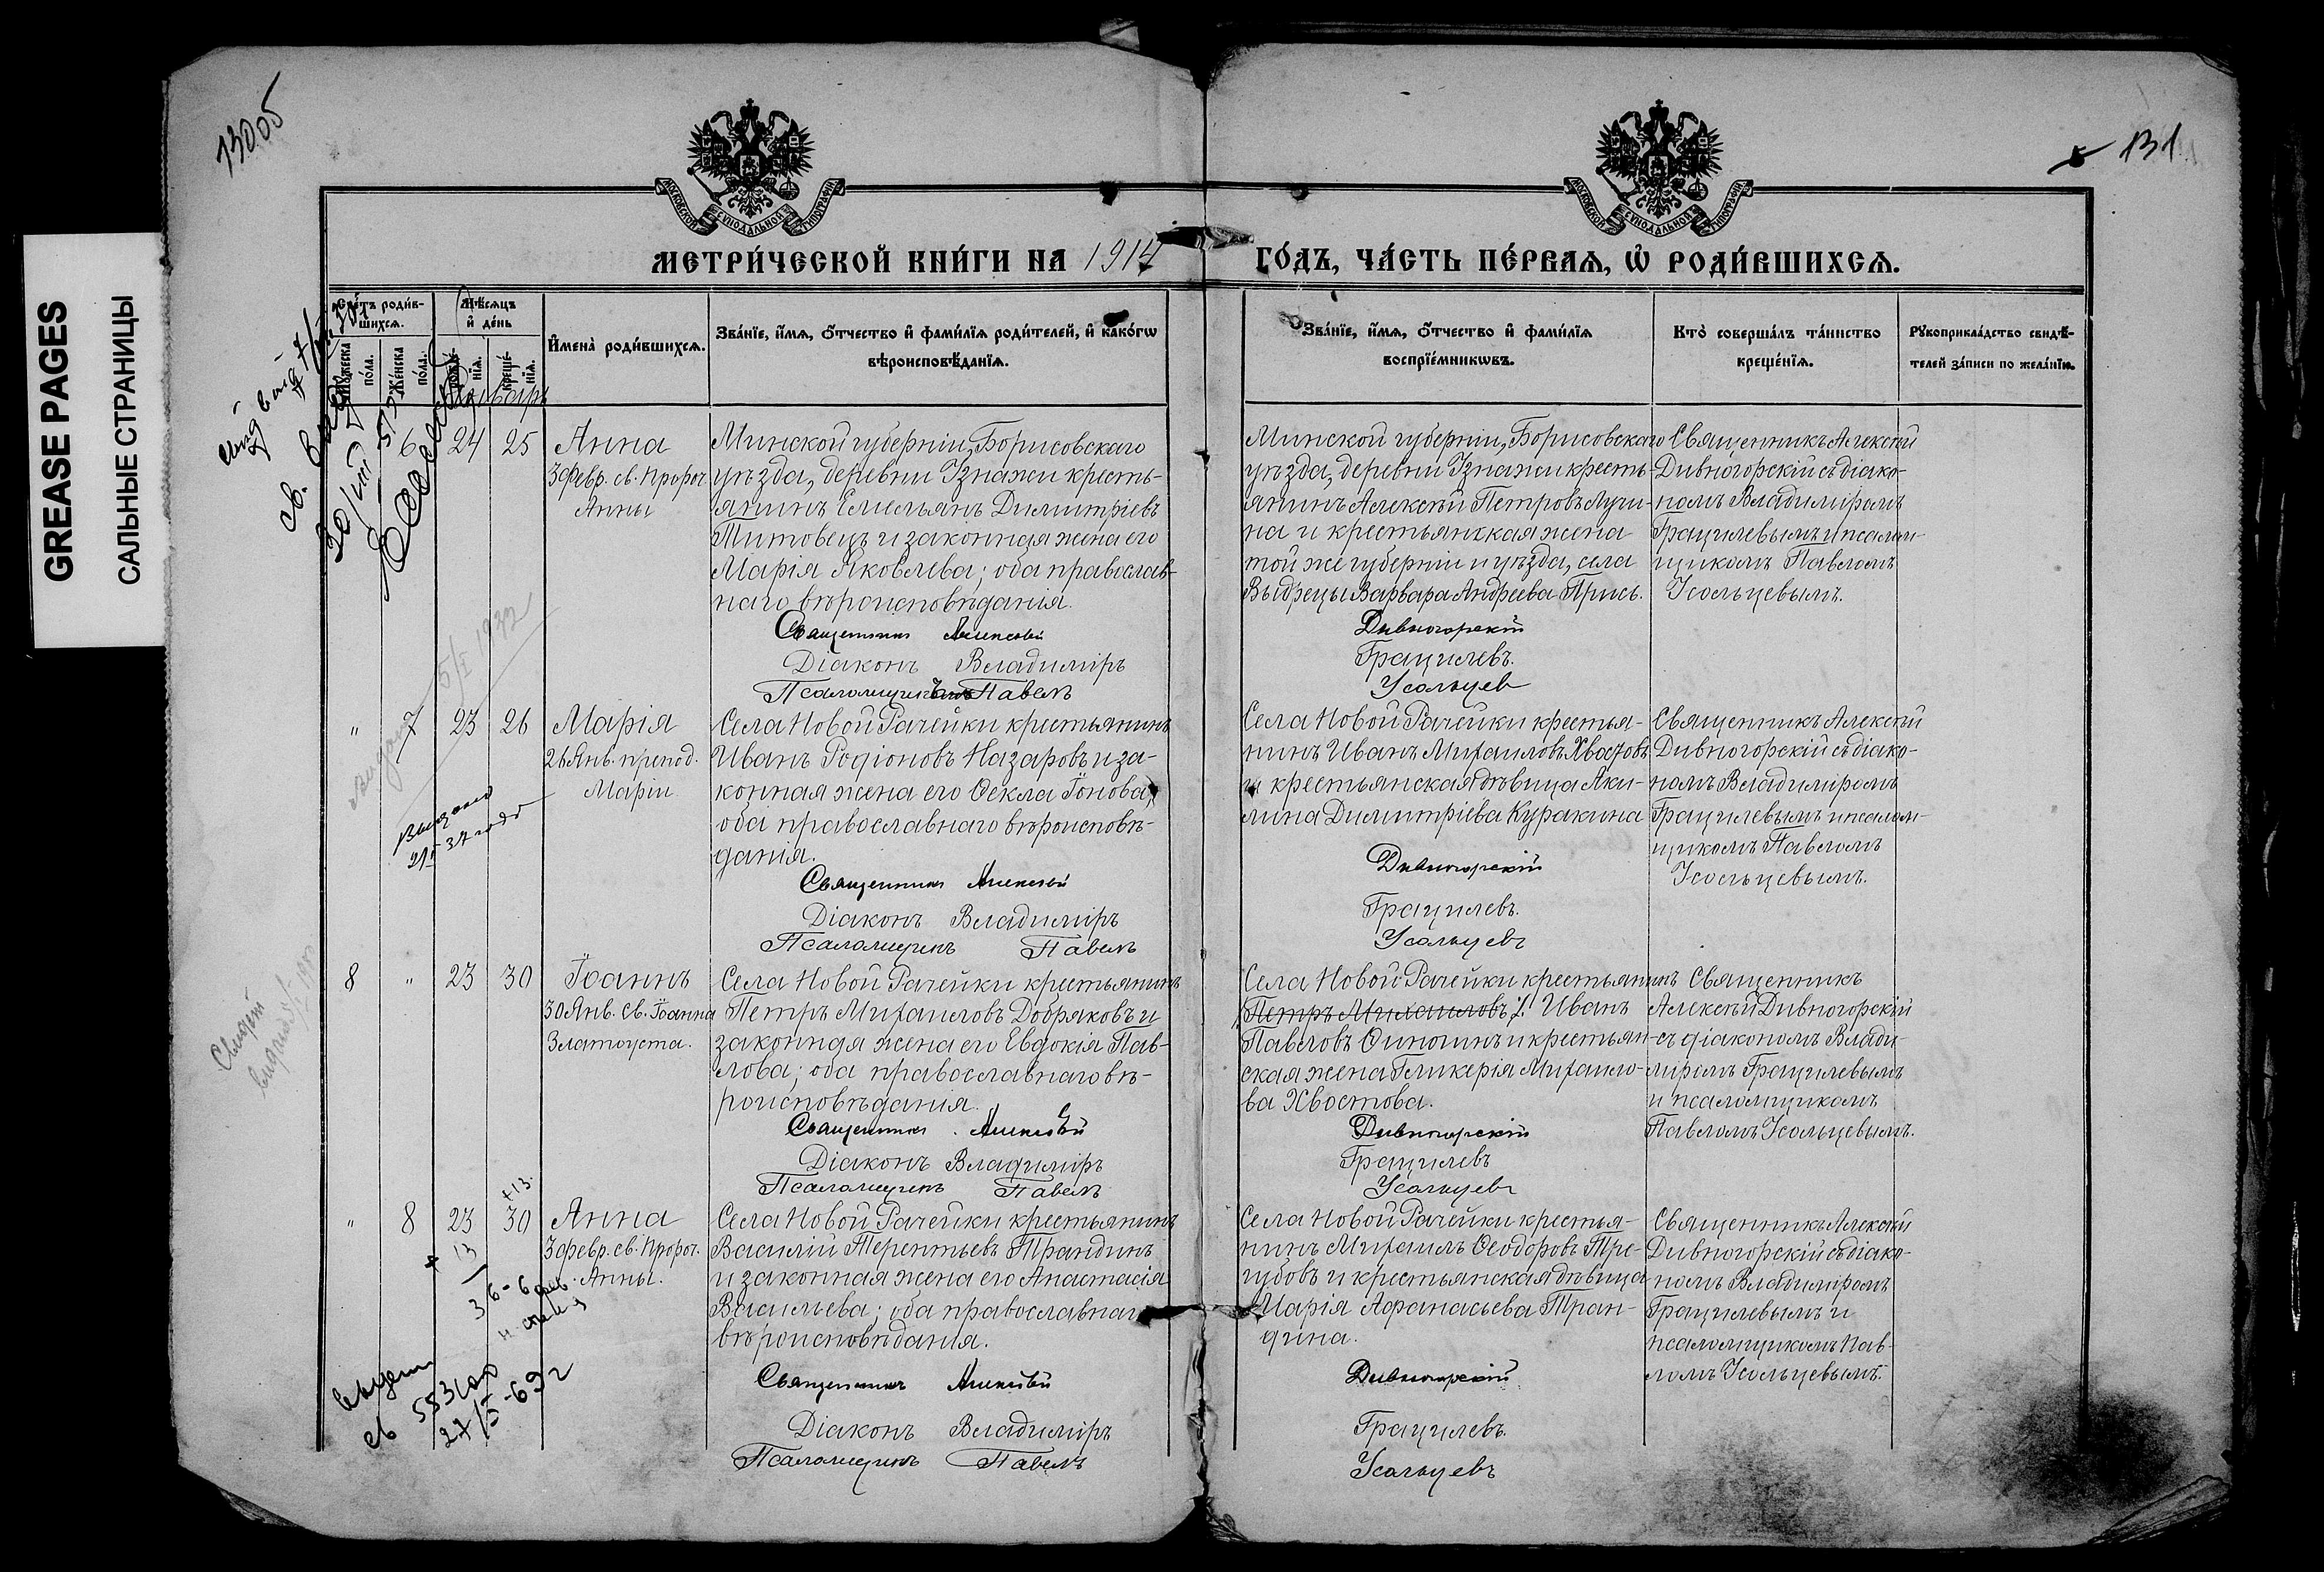 GREASE PAGES
САЛЬНЫЕ СТРАНИЦЫ
130об
131
МОСКОВСКОЙ СѴНОДАЛЬНОЙ ТИПОГРАФІИ
МОСКОВСКОЙ СѴНОДАЛЬНОЙ ТИПОГРАФІИ
МЕТРИ́ЧЕСКОЙ КНИ́ГИ НА 1914 ГО́ДЪ, ЧА́СТЬ ПЕ́РВАЯ, Ѽ РОДИ́ВШИХСЯ.
Сче́тъ роди́в-
шихся.
Мѣ́сяцъ
и҆ де́нь
Му́жеска
по́ла.
Же́нска
по́ла.
рожде́-
нїя.
креще́-
нїя.
И҆мена̀ роди́вшихся.
Зва́нїе, и҆́мя, ѻ҆́тчество и҆ фами́лїя роди́телей, и҆ како́гѡ
вѣроисповѣ́данїя.
Зва́нїе, и҆́мя, ѻ҆́тчество и҆ фами́лїя
воспрїе́мникѡвъ.
Кто̀ соверша́лъ та́инство
креще́нїя.
Рꙋкоприкла́дство свидѣ́-
телей за́писи по жела́нїю.
Январь
6 24 25
Анна
3 февр. св. Пророч.
Анны
Минской губерніи, Борисовскаго
уѣзда, деревни Узнажи кресть-
янинъ Емельянъ Димитріевъ
Титовецъ и законная жена его
Марія Яковлева; оба православ-
наго вѣроисповѣданія.
Священникъ Алексѣй
Діаконъ Владиміръ
Псаломщикъ Павелъ
Минской губерніи, Борисовскаго
уѣзда, деревни Узнажи кресть-
янинъ Алексѣй Петровъ Лучи-
на и крестьянская жена
той же губерніи и уѣзда, села
Выдрецы Варвара Андреева Прись.
Дивногорскій
Грацилевъ.
Усольцев
Священникъ Алексѣй
Дивногорскій съ діако-
номъ Владиміромъ
Грацилевымъ и псалом-
щикомъ Павломъ
Усольцевымъ.
" 7 23 26
Марія
26 Янв. препод.
Маріи
выдано
5/I 1932
Села Новой Рачейки крестьянинъ
Иванъ Родіоновъ Назаровъ и за-
конная жена его Ѳекла Іонова;
оба православнаго вѣроисповѣ-
данія.
Священникъ Алексѣй
Діаконъ Владиміръ
Псаломщикъ Павелъ
Села Новой Рачейки крестья-
нинъ Иванъ Михаиловъ Хвостовъ
и крестьянская дѣвица Аки-
лина Димитріева Куракина
Дивногорскій
Грацилевъ.
Усольцевъ
Священникъ Алексѣй
Дивногорскій съ діако-
номъ Владиміромъ
Грацилевымъ и псалом-
щикомъ Павломъ
Усольцевымъ.
8 " 23 30
Іоаннъ
30 Янв. Св. Іоанна
Златоуста.
Села Новой Рачейки крестьянинъ
Петръ Михаиловъ Добряковъ и
законная жена его Евдокія Пав-
лова; оба православнаго вѣ-
роисповѣданія.
Священникъ Алексѣй
Діаконъ Владиміръ
Псаломщикъ Павелъ
Села Новой Рачейки крестьянинъ
Петръ Михаиловъ Иванъ
Павловъ Ѳиногинъ и крестьян-
ская жена Гликерія Михаило-
ва Хвостова.
Дивногорскій
Грацилевъ
Усольцевъ
Священникъ
Алексѣй Дивногорскій
съ діакономъ Влади-
міромъ Грацилевымъ
и псаломщикомъ
Павломъ Усольцевымъ.
" 8 23 30
Анна
3 февр. св. Пророч.
Анны.
Села Новой Рачейки крестьянинъ
Василій Терентьевъ Трандинъ
и законная жена его Анастасія
Васильева; оба православнаго
вѣроисповѣданія.
Священникъ Алексѣй
Діаконъ Владиміръ
Псаломщикъ Павелъ
Села Новой Рачейки крестья-
нинъ Михаилъ Ѳеодоровъ Тре-
губовъ и крестьянская дѣвица
Марія Аѳанасьева Тран-
дина.
Дивногорскій
Грацилевъ.
Усольцевъ
Священникъ Алексѣй
Дивногорскій съ діако-
номъ Владиміромъ
Грацилевымъ и
псаломщикомъ Пав-
ломъ Усольцевымъ.